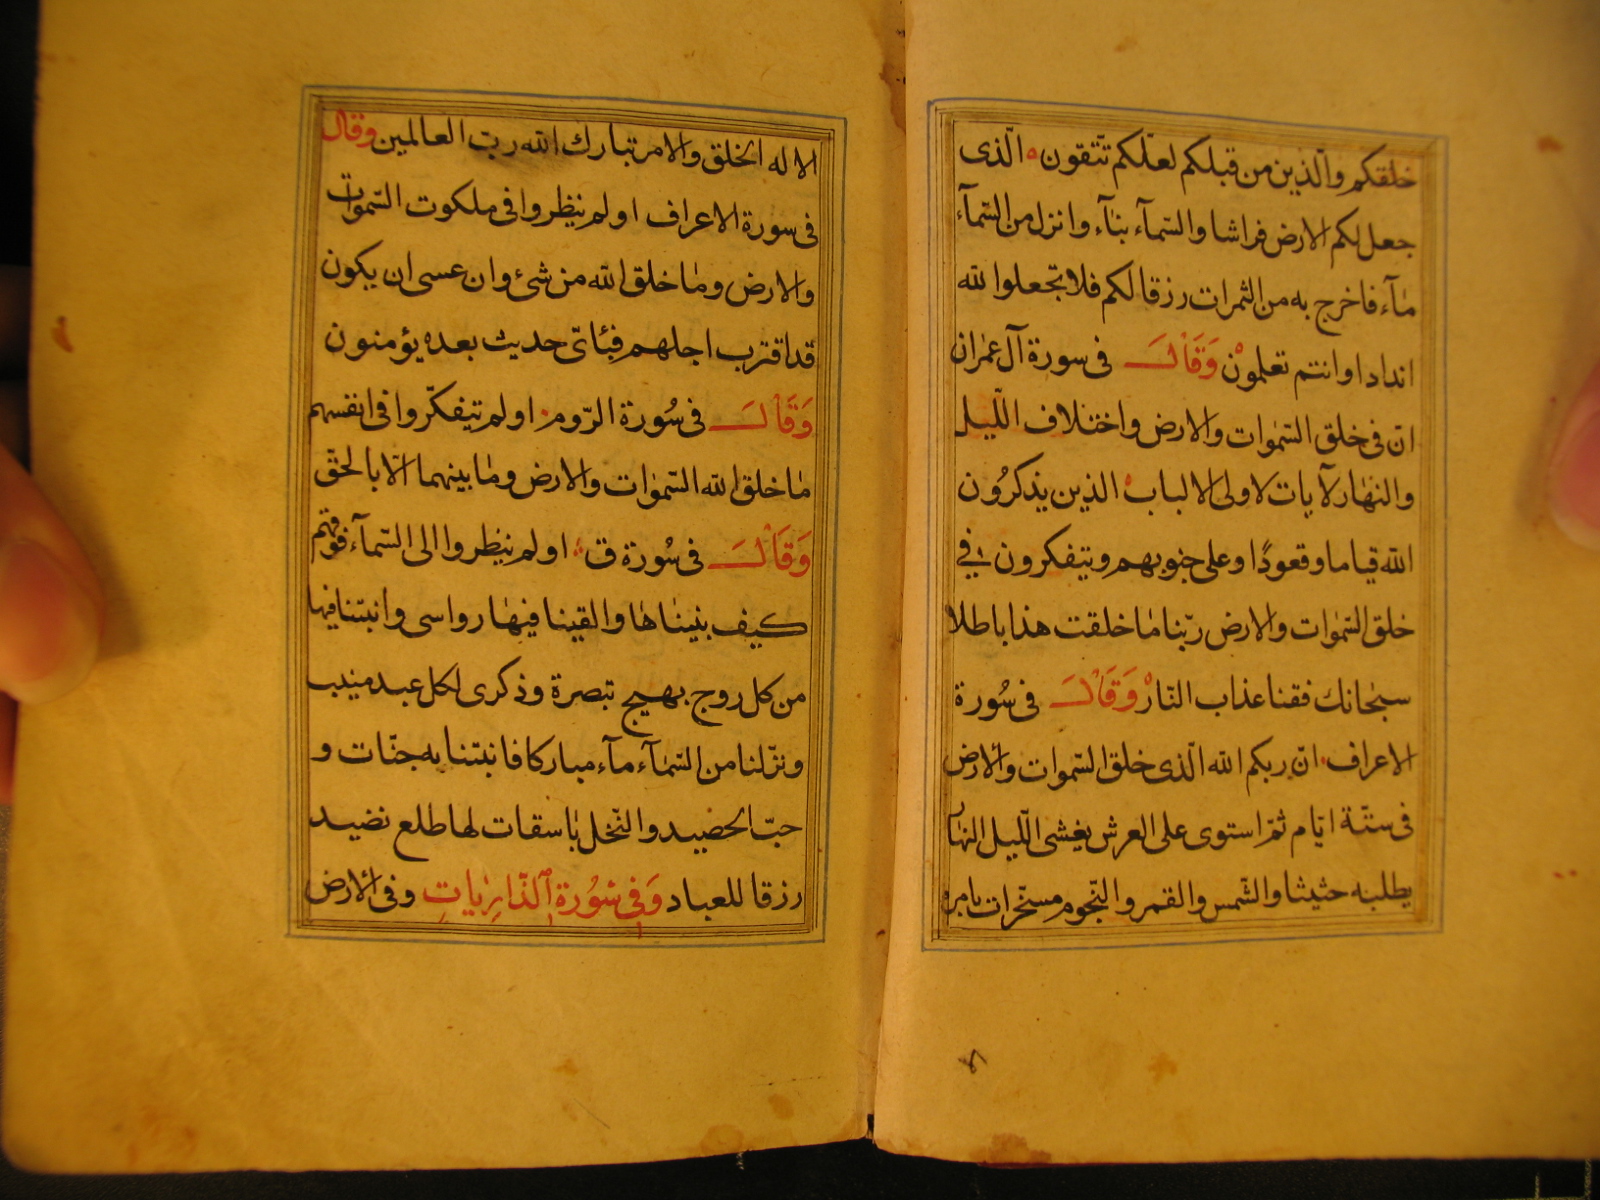 خلقكم والّذين من قبلكم لعلّكم تتّقون الّذى
جعل لكم الارض فراشا والسّمآء بنآء وانزل من السّمآء
مآء فاخرج به من الثمرات رزقا لكم فلا تجعلوا لله
اندادا وانتم تعلمون وَقَالَ فى سورة آل عمران
انّ فى خلق السّموات والارض واختلاف اللّيل
والنهار لآيات لاولى الالباب الذين يذكرُون
الله قياما وقعودًا وعلى جنوبهم ويتفكرون فى
خلق السّموات والارض ربّنا ما خلقت هذا باطلا
سبحانك فقنا عذاب النّار وَقَالَ فى سُورة
الاعراف انّ ربكم الله الّذى خلق السّموات والارض
فى ستّة ايّام ثمّ استوى على العرش يغشى اللّيل النهار
يطلبه حثيثا والشّمس والقمر والنّجوم مسخّرات بامره
الا له الخلق والامر تبارك الله ربّ العالمين وقال
فى سورة الاعراف اولم ينظروا فى ملكوت السّموات
والارض وما خلق الله من شئ وان عسى ان يكون
قد اقترب اجلهم فبأىّ حديث بعده يؤمنون
وَقَالَ فى سُورة الرّوم اولم يتفكّروا فى انفسهم
ما خلق الله السّموات والارض وما بينهما الّا بالحقّ
وَقَالَ فى سُورة ق اولم ينظروا الى السّمآء فوقهم
كيف بنيناها والقينا فيها رواسى وانبتنا فيها
من كل زوج بهيج تبصرة وذكرى لكل عبد منيب
ونزّلنا من السّمآء مآء مباركا فانبتنا به جنّات و
حبّ الحضيد والنّخل باسقات لها طلع نضيد
رزقا للعباد وَفى سُورة الذّاريَات وفى الارض